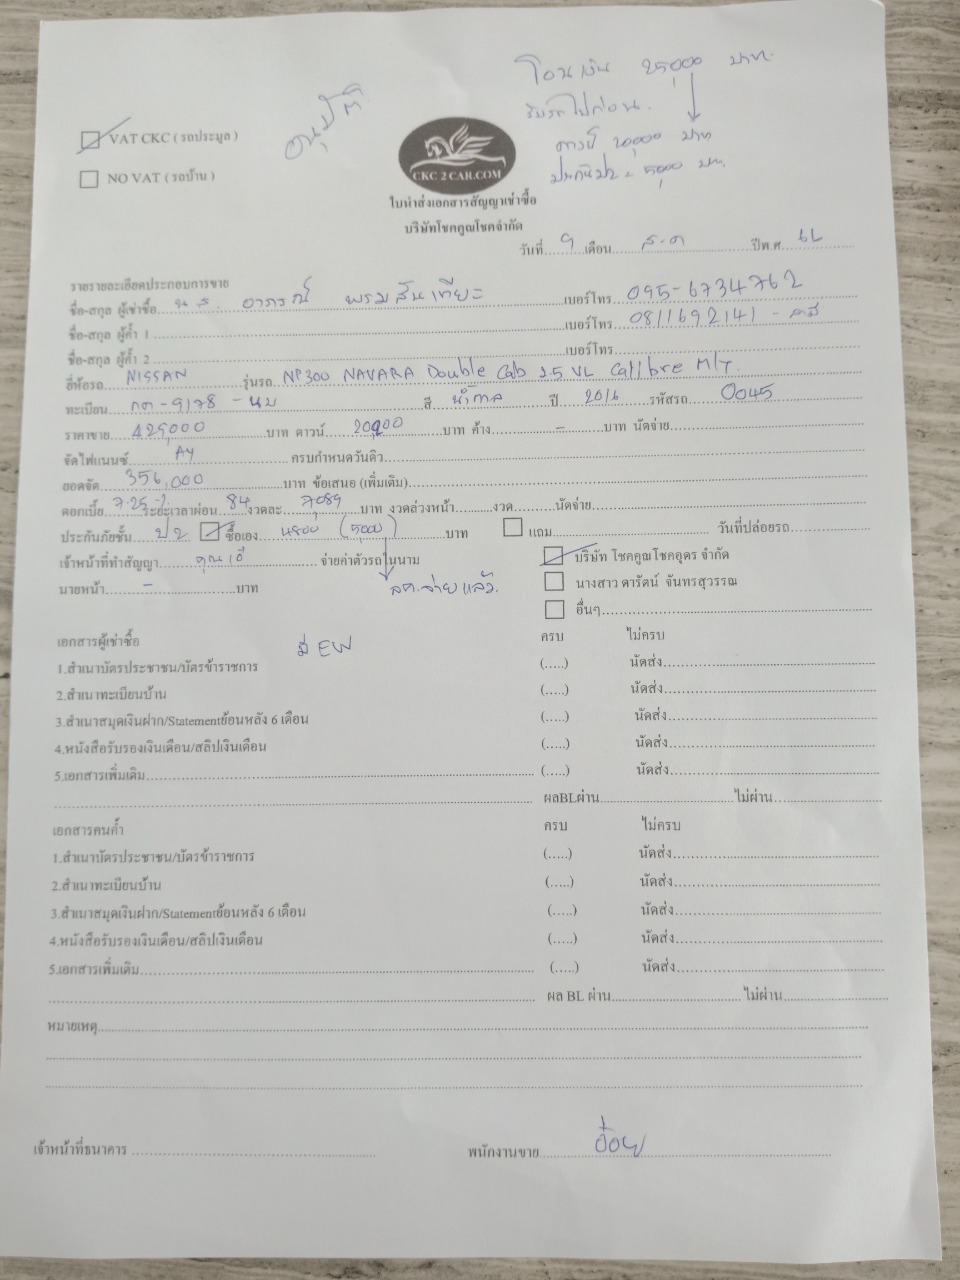 โอนเงิน 25,000 บาท.
อนุมัติ
รับรถไปก่อน.
VAT CKC ( รถประมูล )
ดาวน์ 20,000 บาท
CKC 2 CAR.COM
ประกันป2 = 5,000 บาท.
NO VAT (รถบ้าน )
ใบนำส่งเอกสารสัญญาเช่าซื้อ
บริษัทโชคคูณโชคจำกัด
วันที่ 9 เดือน ส.ค ปีพ.ศ. 66
รายรายละเอียดประกอบการขาย
ชื่อ-สกุล ผู้เช่าซื้อ น.ส. อาภรณ์ พรมสันเทียะ เบอร์โทร 095-6734762
ชื่อ-สกุล ผู้ค้ำ 1 เบอร์โทร 0811692141 - สามี
ชื่อ-สกุล ผู้ค้ำ 2 เบอร์โทร
ยี่ห้อรถ NISSAN รุ่นรถ NP300 NAVARA Double Cab 2.5 VL Calibre M/T
ทะเบียน กต-9178 - นม สี น้ำตาล ปี 2016 รหัสรถ 0045
ราคาขาย 429,000 บาท ดาวน์ 20,000 บาท ค้าง - บาท นัดจ่าย
จัดไฟแนนซ์ AY ครบกำหนดวันดิว
ยอดจัด 356,000 บาท ข้อเสนอ (เพิ่มเติม)
ดอกเบี้ย 7.25 -% ระยะเวลาผ่อน 84 งวดละ 7,089 บาท งวดล่วงหน้า งวด นัดจ่าย
ประกันภัยชั้น ป2 ซื้อเอง (5,000) บาท แถม วันที่ปล่อยรถ
เจ้าหน้าที่ทำสัญญา คุณเอ๋ จ่ายค่าตัวรถในนาม บริษัท โชคคูณโชคอุดร จำกัด
นายหน้า - บาท ลค.จ่ายแล้ว. นางสาว ดารัตน์ จันทรสุวรรณ
อื่นๆ
เอกสารผู้เช่าซื้อ มี EW ครบ ไม่ครบ
1.สำเนาบัตรประชาชน/บัตรข้าราชการ (.....) นัดส่ง
2.สำเนาทะเบียนบ้าน (.....) นัดส่ง
3.สำเนาสมุดเงินฝาก/Statementย้อนหลัง 6 เดือน (.....) นัดส่ง
4.หนังสือรับรองเงินเดือน/สลิปเงินเดือน (.....) นัดส่ง
5.เอกสารเพิ่มเติม (.....) นัดส่ง
ผลBLผ่าน ไม่ผ่าน
เอกสารคนค้ำ ครบ ไม่ครบ
1.สำเนาบัตรประชาชน/บัตรข้าราชการ (.....) นัดส่ง
2.สำเนาทะเบียนบ้าน (.....) นัดส่ง
3.สำเนาสมุดเงินฝาก/Statementย้อนหลัง 6 เดือน (.....) นัดส่ง
4.หนังสือรับรองเงินเดือน/สลิปเงินเดือน (.....) นัดส่ง
5.เอกสารเพิ่มเติม (.....) นัดส่ง
ผล BL ผ่าน ไม่ผ่าน
หมายเหตุ
เจ้าหน้าที่ธนาคาร พนักงานขาย อ้อย